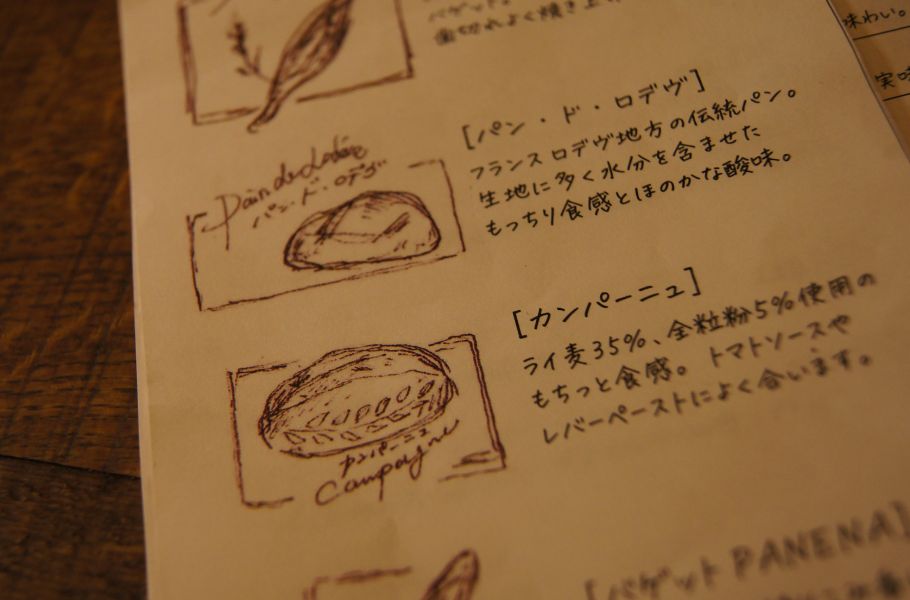 バゲット。
歯切れよく焼き上
味わい。
実味
[パン・ド・ロデヴ]
フランス ロデヴ地方の伝統パン。
生地に多く水分を含ませた
もっちり食感とほのかな酸味。
Pain de Lodève
パン・ド・ロデヴ
[カンパーニュ]
ライ麦35%、全粒粉5%使用の
もちっと食感。トマトソースや
レバーペーストによく合います。
カンパーニュ
Campagne
[バゲット PANENA]